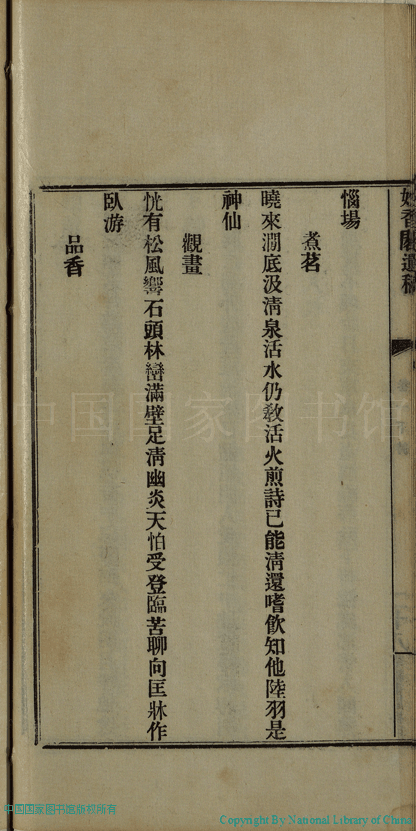 惱場
煮茗
曉來澗底汲清泉活水仍敎活火煎詩已能清還嗜飲知他陸羽是
神仙
觀畫
恍有松風響石頭林巒滿壁足清幽炎天怕受登臨苦聊向匡牀作
臥游
品香
中国国家图书馆
中国国家图书馆版权所有
Copyright By National Library of China